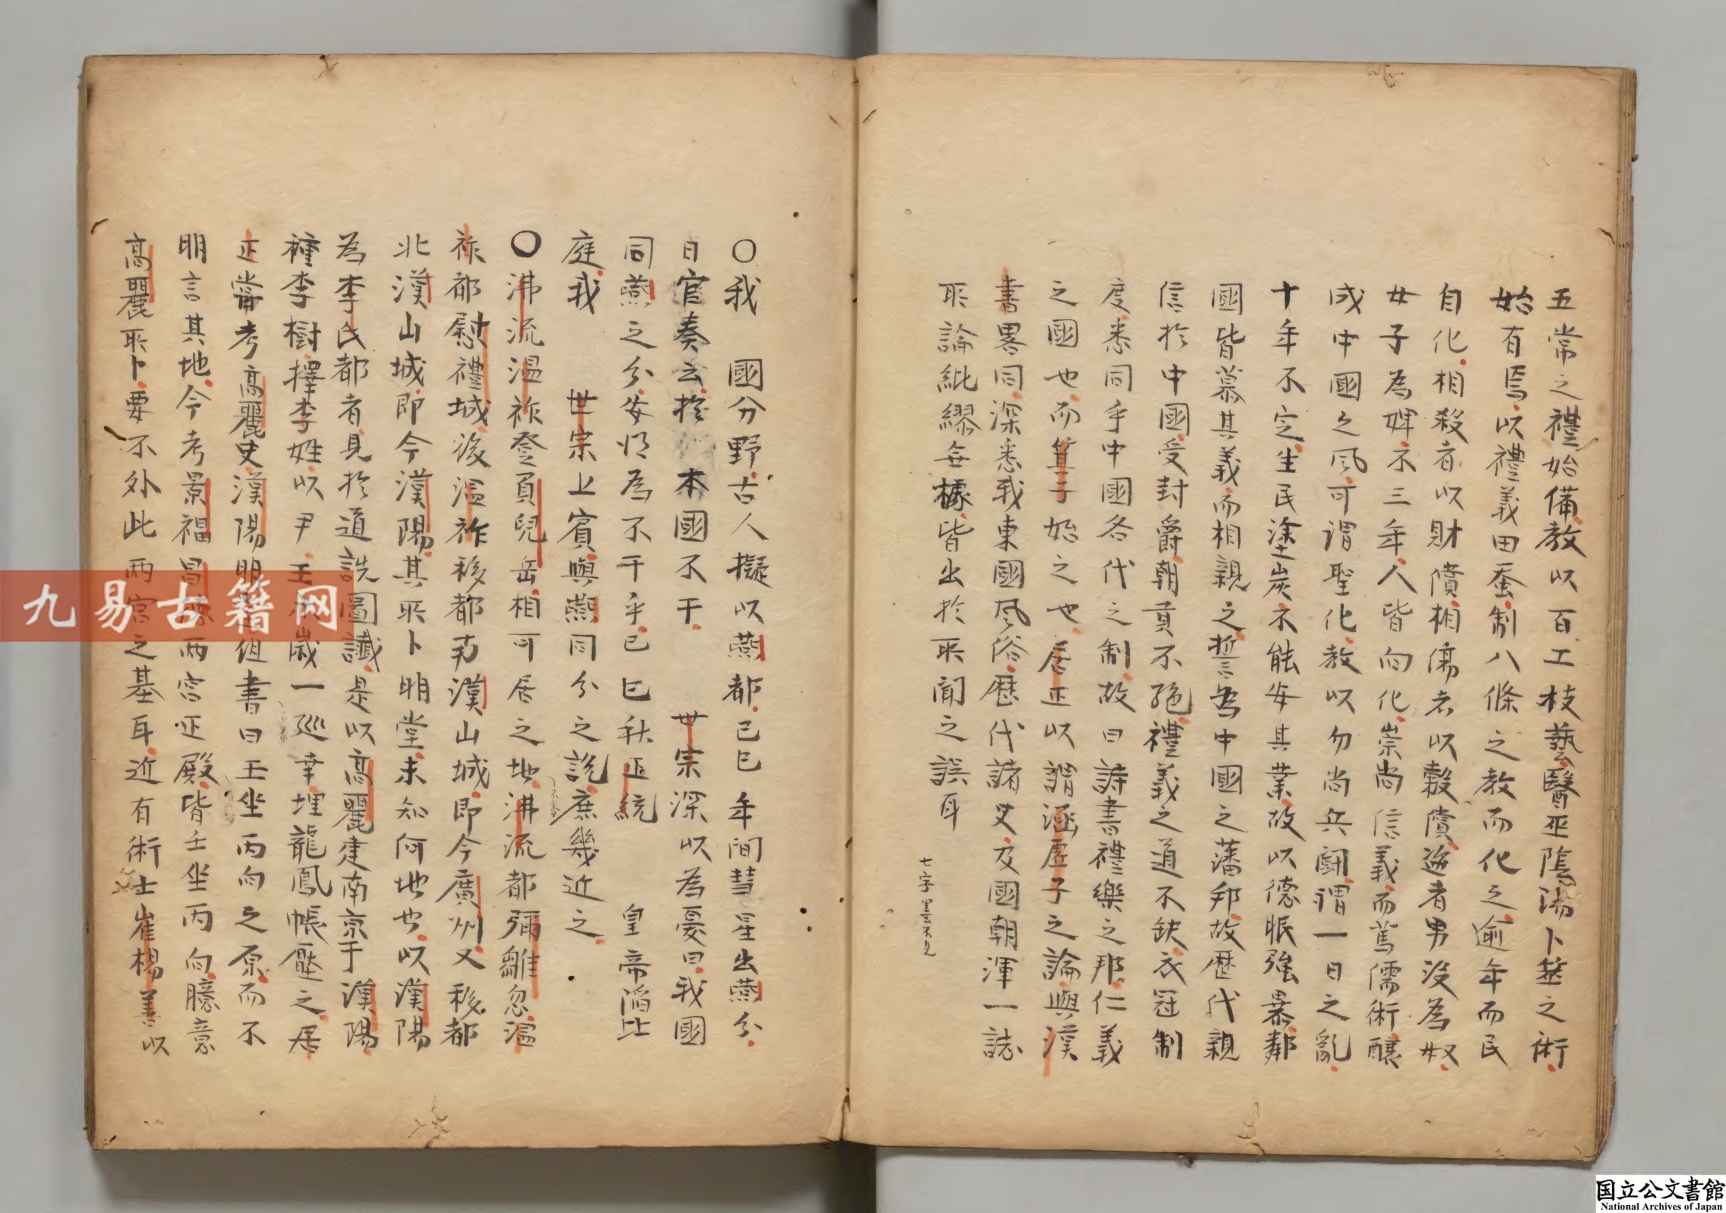 五常之禮始備教以百工枝藝醫巫陰陽卜筮之術
始有焉以禮義田蚕制八條之教而化之逾年而民
自化相殺者以財償相傷者以穀償盜者男沒為奴
女子為婢不三年人皆向化崇尚信義而篤儒術釀
成中國之風可謂聖化教以勿尚兵鬪謂一日之亂
十年不定生民塗炭不能安其業故以德眠強暴鄰
國皆慕其義而相親之誓為中國之藩邦故歷代親
信於中國受封爵朝貢不絕禮義之道不缺衣冠制
度悉同乎中國各代之制故曰詩書禮樂之邦仁義
之國也而箕子始之也居正以謂涵虛子之論與漢
書畧同深悉我東國風俗歷代諸史文國朝渾一誌
所論紕繆無據皆出於所聞之誤耳
七字墨不見
○我 國分野古人擬以燕都己巳年間彗星出燕分
日官奏云於本國不干 世宗深以為憂曰我國
同燕之分安得為不干乎己巳秋正統 皇帝陷北
庭我 世宗上賓與燕同分之說庶幾近之
○沸流溫祚登負兒岳相可居之地沸流都彌鄒忽溫
祚都慰禮城後溫祚移都南漢山城即今廣州又移都
北漢山城即今漢陽其所卜明堂未知何地也以漢陽
為李氏都者見於道詵圖讖是以高麗建南京于漢陽
種李樹擇李姓以尹王歲一巡幸埋龍鳳帳壓之居
正嘗考高麗史漢陽明組書曰壬坐丙向之原而不
明言其地今考景福昌兩宮正殿皆壬坐丙向臆意
高麗所卜要不外此兩宮之基耳近有術士崔楊善以
九易古籍网
国立公文書館
National Archives of Japan